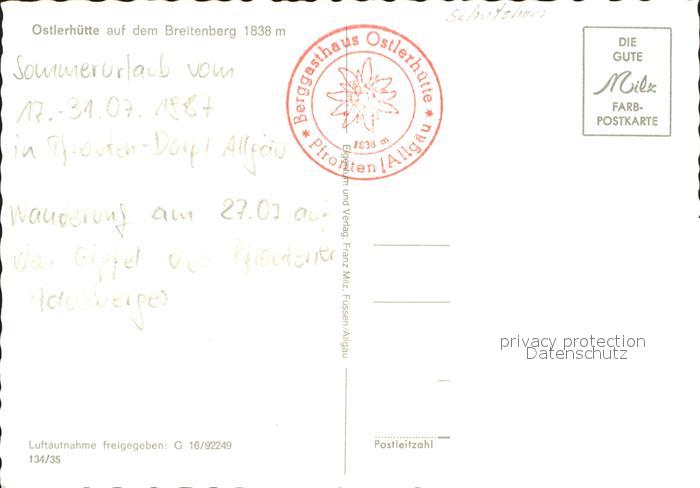 Schutzhaus
Ostlerhütte auf dem Breitenberg 1838 m
Sommerurlaub vom
17.-31.07.1987
in Pfronten-Dorf / Allgäu
Wanderung am 27.07 auf
den Gipfel des Pfrontener
Hausberges
★ Berggasthaus Ostlerhütte ★
1838 m
Pfronten/Allgäu
DIE
GUTE
Milz
FARB-
POSTKARTE
Eigentum und Verlag, Franz Milz, Füssen/Allgäu
privacy protection
Datenschutz
Luftautnahme freigegeben: G 16/92249
134/35
Postleitzahl